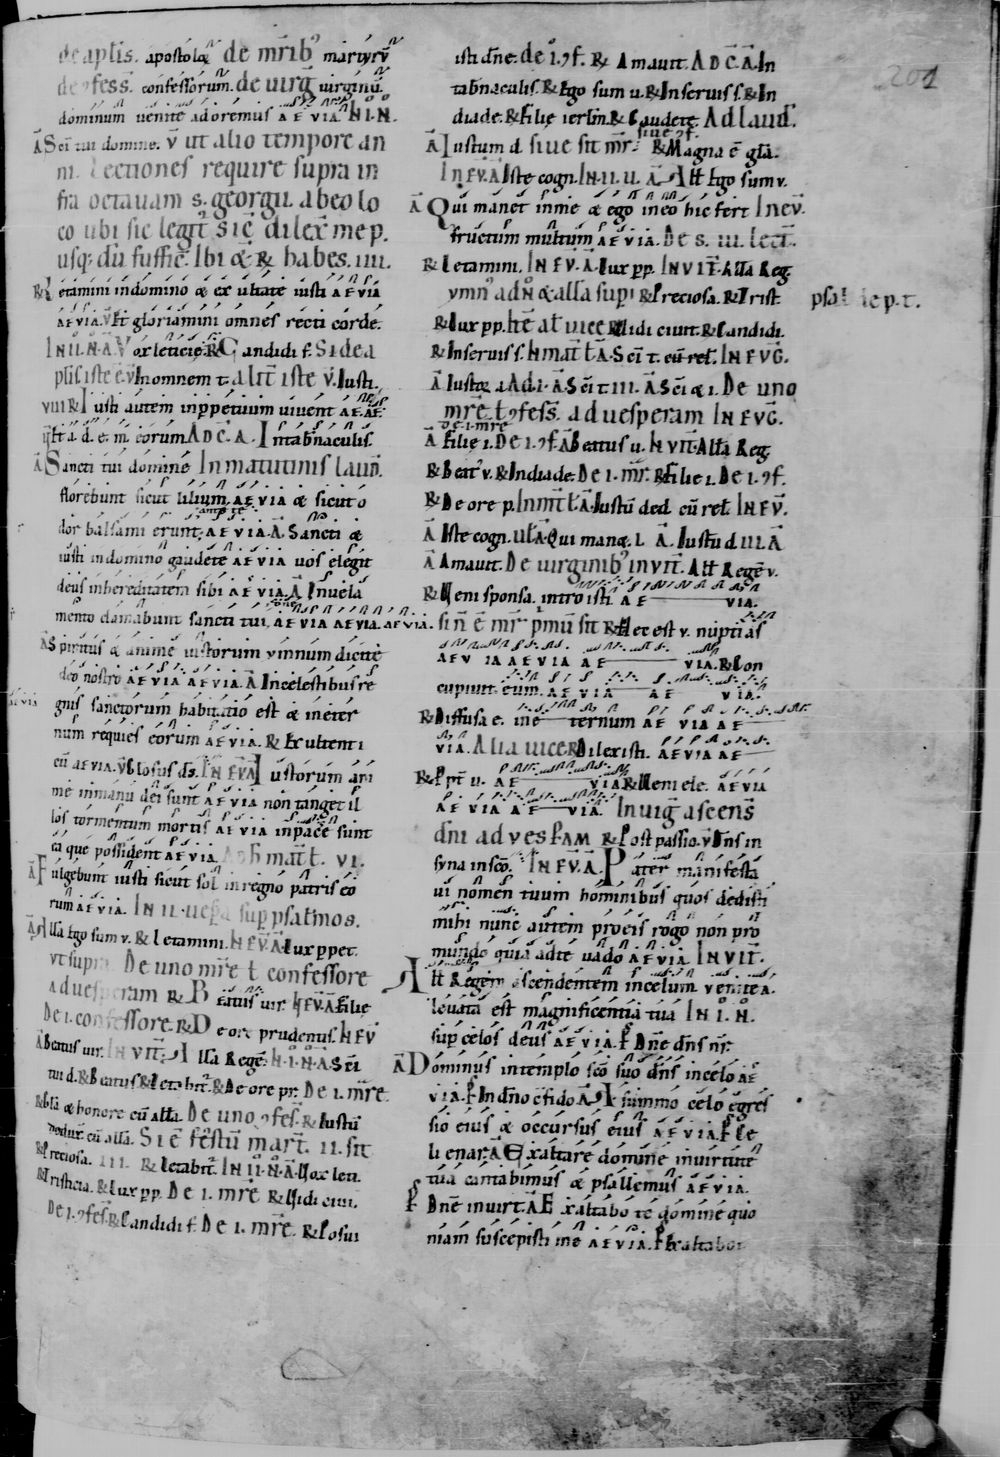 de aptis. apostoloꝝ de mr̄ib9 martyrū
de ꝯfess̄. confessorum. de uirḡ uirginū.
dominum uenite adoremus AEVIA. IN I. N.
Ā Sc̄i tui domine. v̄ ut alio tempore an
m. Lectiones require supra in
fra octauam s. georgii. ab eo lo
co ubi sic legit̄ sic̄ dilex̄ me p.
usq; dū suffic̄. Ibi & R habes. iiii.
R Letamini in domino & exultate iusti AEVIA
AEVIA. V Et gloriamini omnes recti corde.
IN II. N. A. Vox leticie. R Candidi f. Si de a
ptis iste ē. v̄ In omnem t. alit̄ iste v̄. Iusti.
VIII R Iusti autem in ppetuum uiuent AE. AE.
Et a. d. e. m. eorum. AD C̄. A. In tab̄naculis.
Ā Sancti tui domine In matutinis laud̄.
florebunt sicut lilium. AEVIA & sicut o
dor balsami erunt. ante te AEVIA. Ā. Sancti &
iusti in domino gaudete AEVIA uos elegit
deus in hereditatem sibi AEVIA. Ā In uela
mento clamabunt sancti tui, AEVIA AEVIA. AEVIA.
Ā Spiritus & anime iustorum ymnum dicite
deo nostro AEVIA AEVIA. Ā In celestibus re
gnis sanctorum habitatio est & in eter
AEVIA
num requies eorum AEVIA. R Exultent i
cū AEVIA. V Gl̄osus ds̄. IN EV̄A Iustorum ani
me in manu dei sunt AEVIA non tanget il
los tormentum mortis AEVIA in pace sunt
ea que possident AEVIA. mat̄ t. VI.
Ā Fulgebunt iusti sicut sol in regno patris eo
rum AEVIA. IN II. uesp̄a sup psalmos.
Ā Alla Ego sum v. R Letamini. IN EV̄. Ā Lux perpet.
vt supra De uno mr̄e t confessore
ad uesperam R Beatus uir. IN EV̄. Ā Filie
De i. confessore. R De ore prudentis. IN EV̄
Ā Beatus uir. IN VIT̄. Alla Regē. IN. I. N. Ā. Sc̄i
tui d. R Beatus R Letabit̄. R De ore pr. De i. mr̄e.
R Gl̄a & honore cū alla. De uno ꝯfes̄. R Iustū
deduxit cū alla. Si ē festū mart̄. II. sit
R Preciosa. III. R Letabit̄. IN II. N. Ā. Vox leti.
R Tristicia. R Lux pp. De i. mr̄e R Vidi ciui.
De i. ꝯfes̄. R Candidi f. De i. mr̄e. R Posui
isti dn̄e. de i. ꝯf. R Amauit. AD C̄. Ā. In
tab̄naculis. R Ego sum u. R In seruis s. R In
diade. R Filie ierlm̄. R Gaudete. Ad laud̄.
siue ꝯf.
Ā Iustum d. siue sit mr̄. R Magna ē gl̄a.
IN EV̄. Ā Iste cogn. IN. II. U. Ā. Alt Ego sum v.
Ā Qui manet in me & ego in eo hic fert IN EV̄.
fructum multum AEVIA. De s. III. lect̄.
R Letamini. IN EV̄. Ā. Lux pp. IN VIT̄. Alla Reg.
ymn9 ad N & alla supi R Preciosa. R Trist.
psal. de p. t.
R Lux pp. hc̄ at uice R Vidi ciuit. R Candidi.
R In seruis s. IN mat̄ t Ā. Sc̄i t. cū rel. IN EVḠ.
Ā Iustoꝝ a Ad. i. Ā. Sc̄i t. III. Ā Sc̄i & i. De uno
mr̄e. t ꝯfess̄. ad uesperam IN EVḠ.
De. i. mr̄e
Ā Filie i. De i. ꝯf. Ā Beatus u. IN VIT̄. Alla Reg.
R Beat9 v. R In diade. De i. mr̄. R Filie i. De i. ꝯf.
R De ore p. In mat̄ t Ā. Iustū ded. cū rel. IN EV̄.
Ā Iste cogn. ul Ā. Qui manet. I. Ā. Iustū d. III. Ā
Ā Amauit. De uirginib9 inuit̄. Alt Regē v.
R Veni sponsa. intro isti. AE VIA.
sin̄ ē mr̄ pmū sit R Hec est v. nuptias
AEVIA AEVIA AE VIA. R Con
cupiuit eum. AEVIA AE VIA.
R Diffusa e. in e ternum AE VIA AE
VIA. Alia uice R Dilexisti. AEVIA AE
R Ppt̄ u. AE VIA R Veni ele. AEVIA
AEVIA AE VIA. In uig̃ ascens̄
dni ad vesp̄am R Post passio. V Dn̄s in
syna in sc̄o. IN EV̄. Ā. Pater manifesta
ui nomen tuum hominibus quos dedisti
mihi nunc autem pro eis rogo non pro
mundo quia ad te uado AEVIA. IN VIT̄.
Alt Regem ascendentem in celum. venite a.
leuata est magnificentia tua IN I. N.
sup celos deus AEVIA. P Dn̄e dn̄s nr̄.
Ā Dominus in templo sc̄o suo dn̄s in celo AE
VIA. P In dn̄o cōfido Ā A summo celo egres
sio eius & occursus eius AEVIA. P Ce
li enar. Ā Exaltare domine in uirtute
tua cantabimus & psallemus AEVIA.
P Dn̄e in uirt. Ā Exaltabo te domine quo
niam suscepisti me AEVIA. P Exaltabo.
201